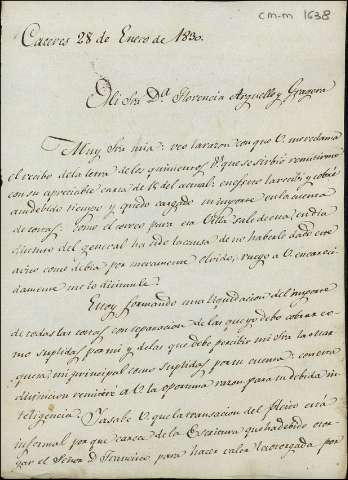 cm-m 1638
Caceres 28 de Enero de 1830.
Mi Sra. Da. Florencia Arguelles y Gragera
Muy Sra. mia: veo la razon con que V. me reclama
el recibo de la letra de los quinientos rs. que se sirbió remitirme
con su apreciable carta de 15 del actual: en efecto la recibi y cobré
a su debido tiempo y quedó cargado su importe en la cuenta
de costas: Como el correo para esa Villa sale de esa en dia
distinto del general ha sido la causa de no haberle dado este
aviso como debia por meramente olvido, ruego a V. encareci-
damente me lo disimule.
Estoy formando una liquidacion del importe
de todas las costas con separacion de las que yo debo cobrar co-
mo suplidas por mi y de las que debe percibir mi Sra. la Mar-
quesa mi principal como suplidas por su cuenta: con esta
distincion remitiré a V. la oportuna razon para su debida in-
teligencia. Ya sabe V. que la transacion del pleito está
informal por que carece de la Escritura que ha debido otor-
gar el Señor D. Francisco para hacer valer la otorgada por